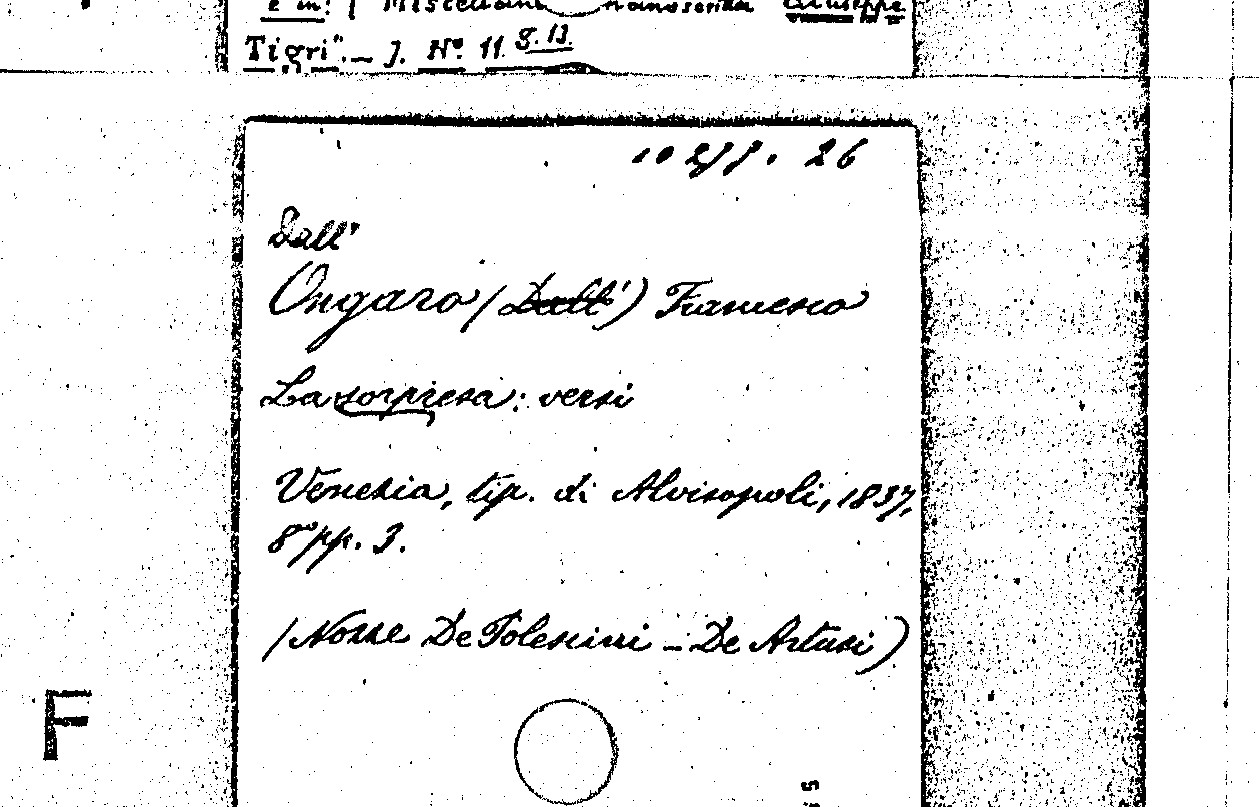 e in: Miscellan manoscritta Giuseppe
Tigri". - J. No. 11. 8.13.
10277. 26
Dall'
Ongaro (Dall') Francesco
La sorpresa: versi
Venezia, tip. di Alvisopoli, 1837,
8° pp. 3.
(Nozze De Tolentini - De Artusi)
F